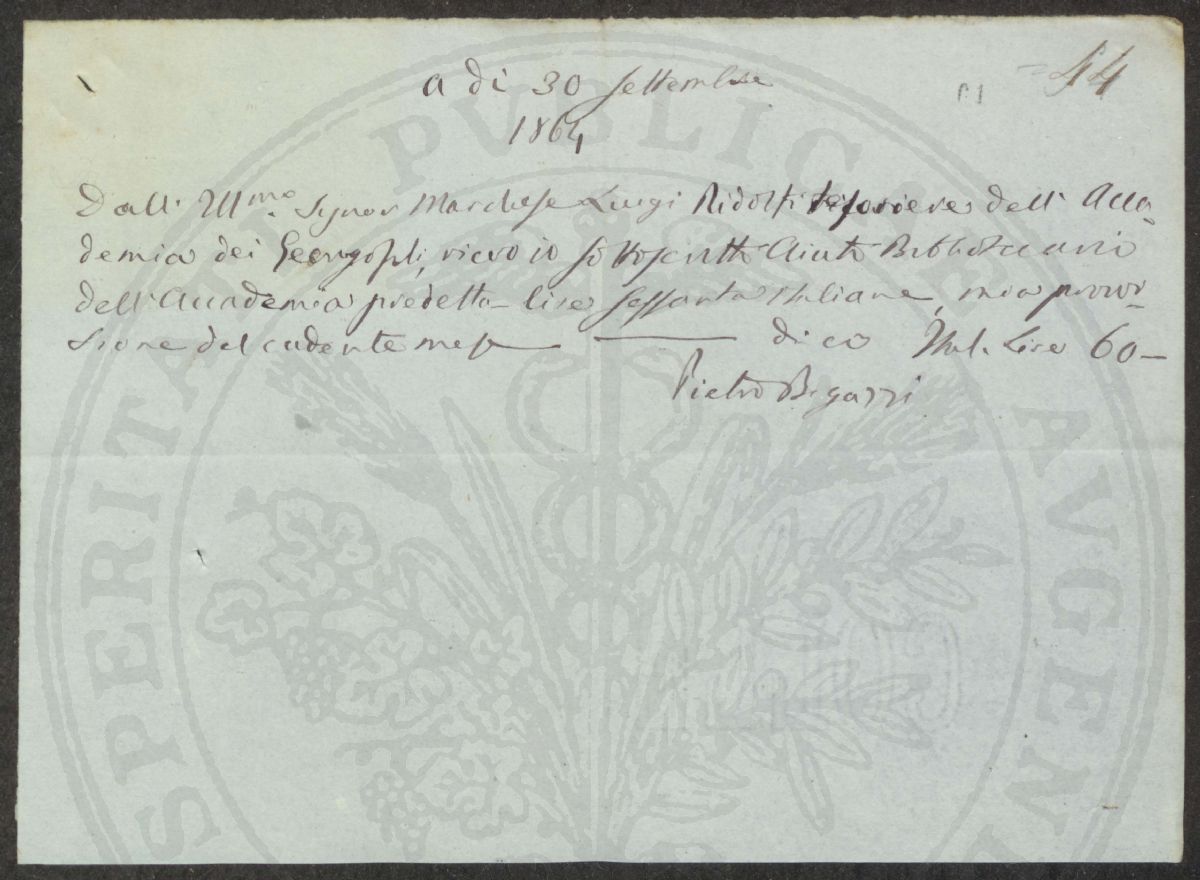 =44
a dì 30 Settembre
1864
Dall' Ill.mo Signor Marchese Luigi Ridolfi tesoriere dell' Acca-
demia dei Georgofili, ricevo io sottoscritto Aiuto Bibliotecario
dell' Accademia predetta lire sessanta Italiane, mia provvi-
sione del cadente mese ——— dico Ital. Lire 60—
Pietro Bigazzi
PROSPERITATI PUBLICAE AUGENDAE